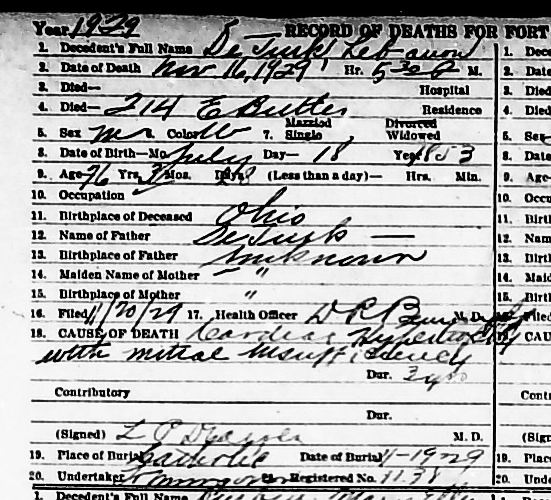 Year 1929 RECORD OF DEATHS FOR FORT
1. Decedent's Full Name DeTurk Lebanon
2. Date of Death Nov 16, 1929 Hr. 5 30 P M.
3. Died— Hospital
4. Died— 214 E Butler Residence
5. Sex M Color W 7. Married Single Divorced Widowed
8. Date of Birth—Mo. July Day— 18 Year 1853
9. Age 76 Yrs. 3 Mos. Days 28 (Less than a day)— Hrs. Min.
10. Occupation
11. Birthplace of Deceased Ohio
12. Name of Father DeTurk —
13. Birthplace of Father Unknown
14. Maiden Name of Mother — "
15. Birthplace of Mother "
16. Filed 11/20/29 17. Health Officer D R M. D.
18. CAUSE OF DEATH Cardiac Hypertrophy
with mitral insufficiency
Dur. 3 yrs
Contributory
Dur.
(Signed) L P M. D.
19. Place of Burial Catholic Date of Burial 11-19 29
20. Undertaker Registered No. 1178
1. Decedent's Full Name
1. Dece
2. Date
3. Died
4. Died
5. Sex
8. Date
9. Age
10. Occu
11. Birth
12. Nam
13. Birth
14. Maid
15. Birth
Filed
CAU
Cont
(Sign
19. Place
20. Unde
1. Dece